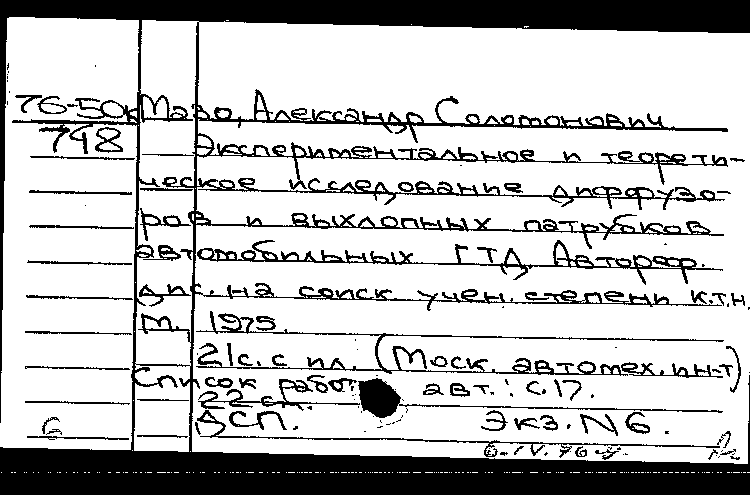 76-50к Мазо, Александр Соломонович
748 Экспериментальное и теорети-
ческое исследование диффузо-
ров и выхлопных патрубков
автомобильных ГТД. Автореф.
дис. на соиск. учен. степени к.т.н.
М., 1975.
21с. с ил. (Моск. автомех. ин-т)
Список работ авт.: с.17.
22 см.
ДСП. Экз. N 6.
6 6.IV.76